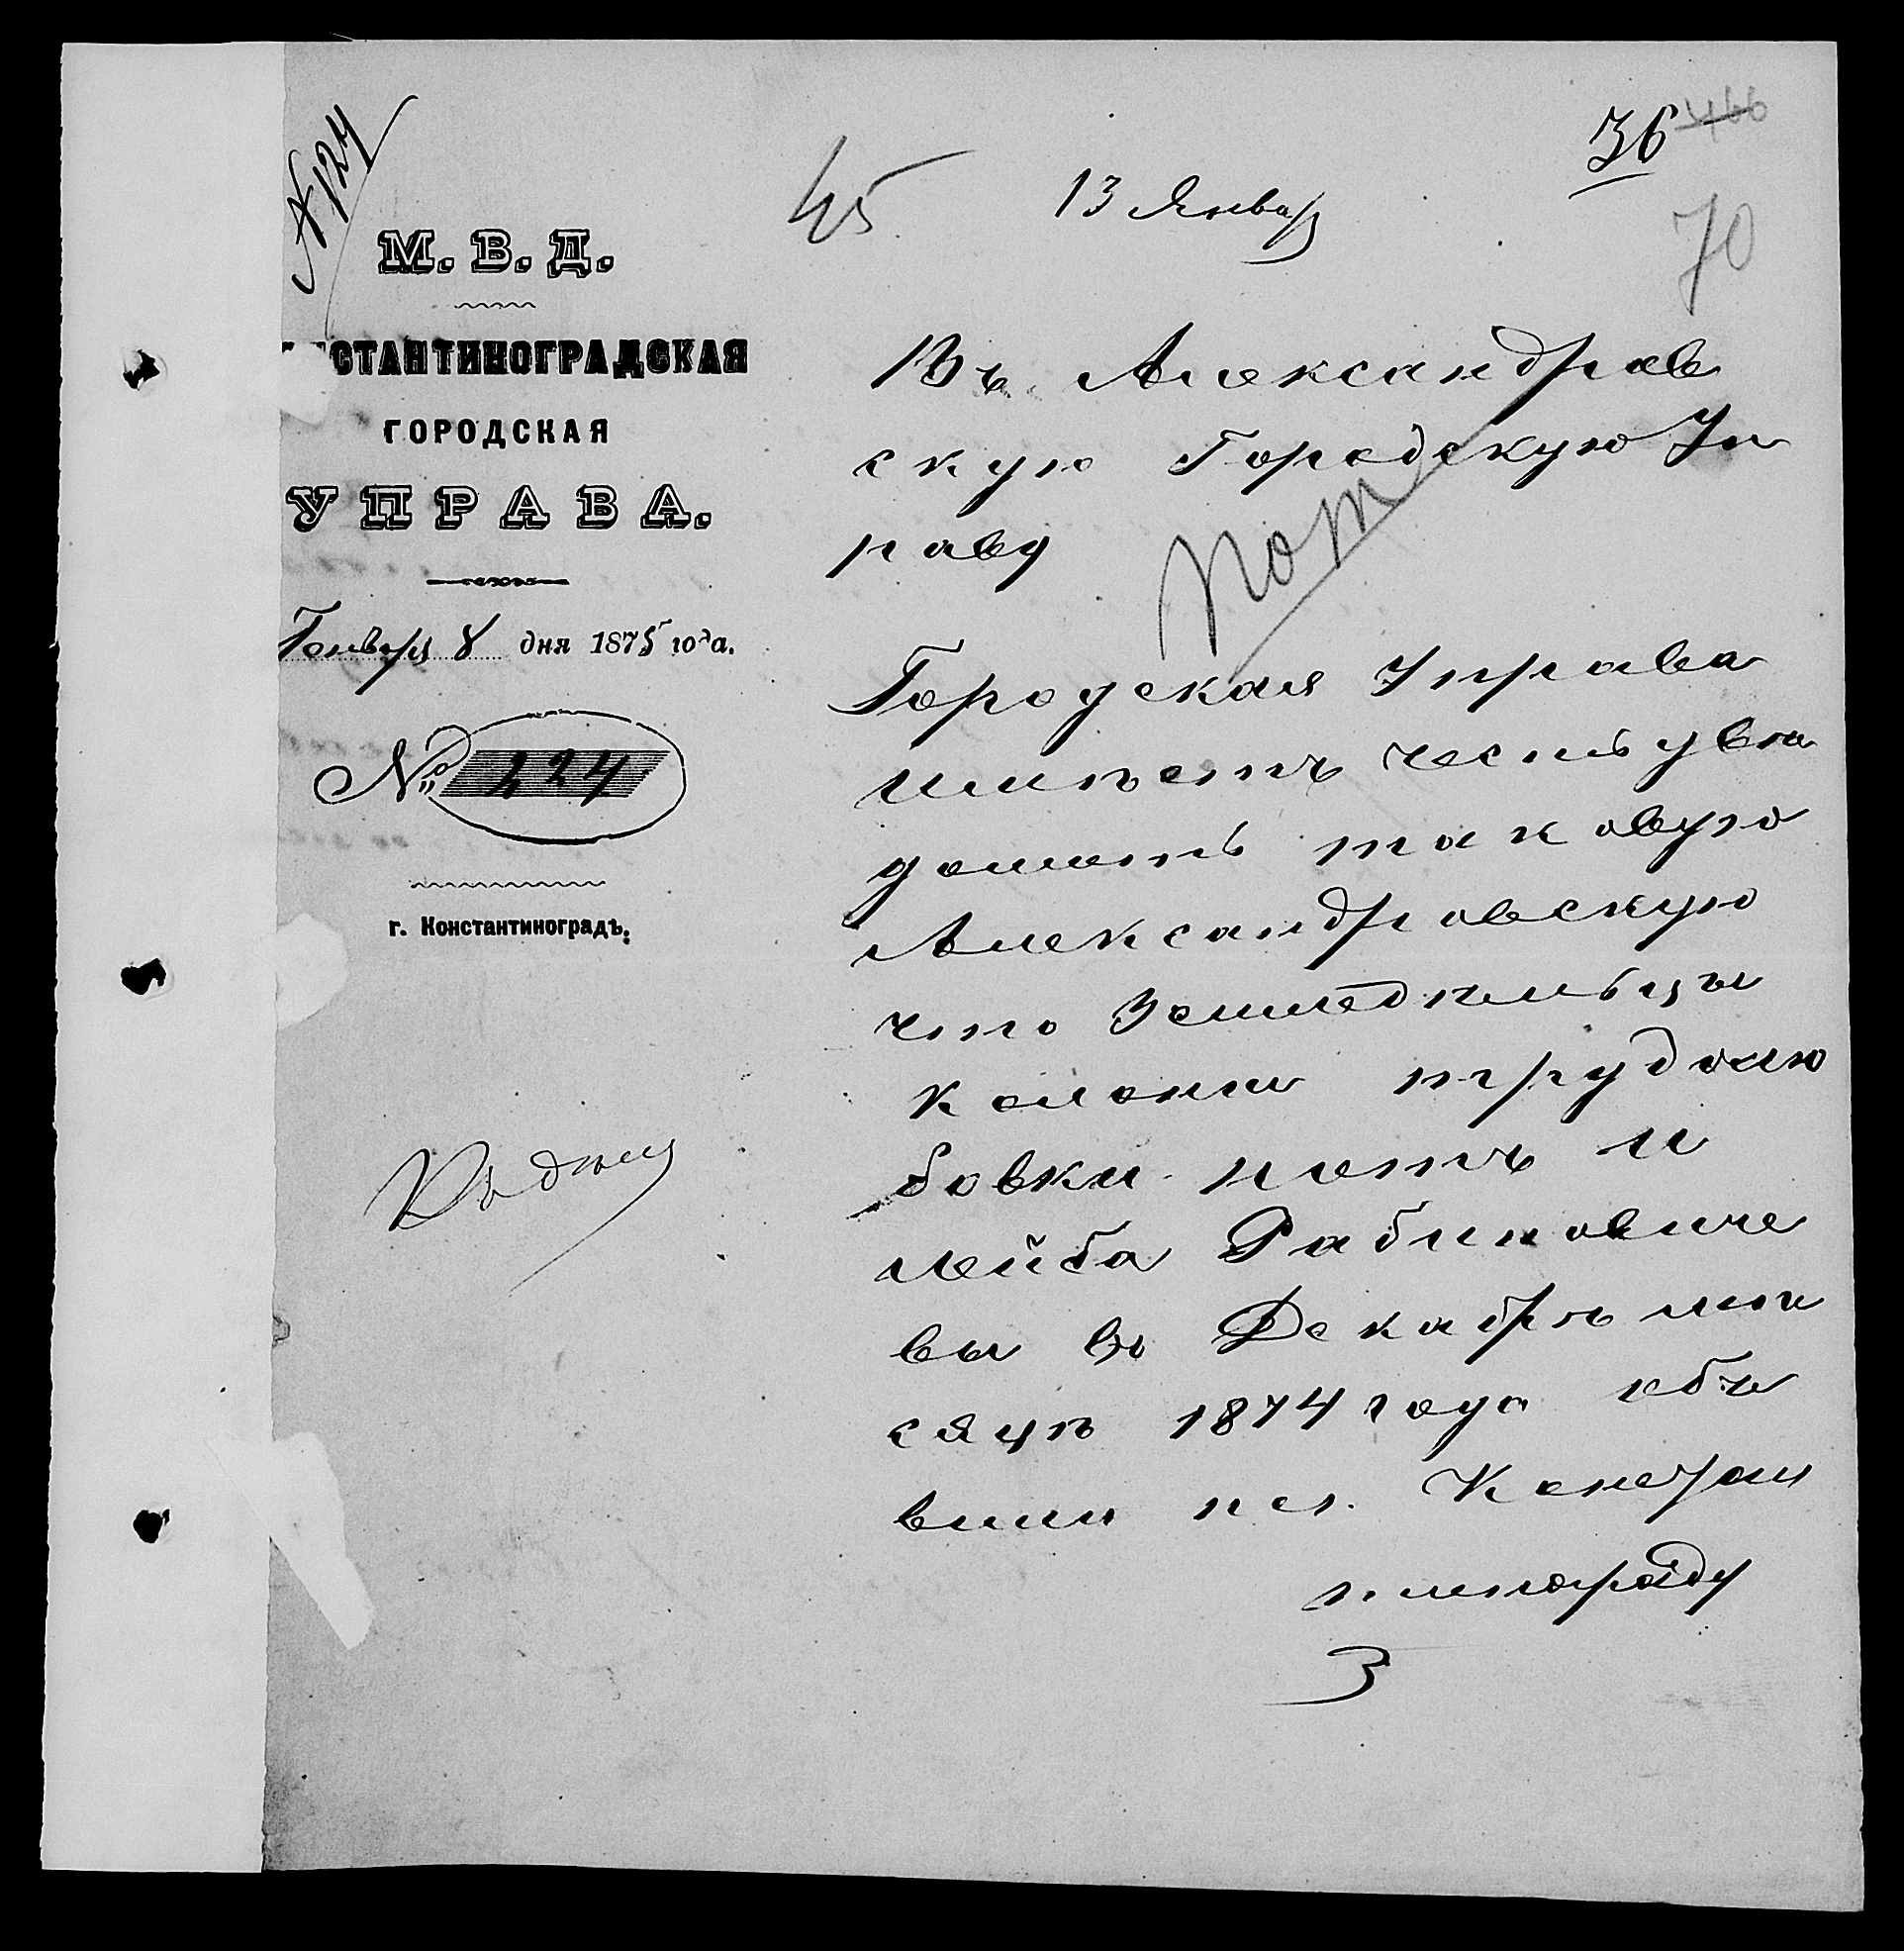 № 124
М. В. Д.
СТАНТИНОГРАДСКАЯ
ГОРОДСКАЯ
УПРАВА.
Генваря 8 дня 1875 года.
№ 124
г. Константиноградъ.
Къ дѣлу
45
13 Январ
36
466
70
Въ Александров
скую Городскую Уп
раву
Городская Управа
имѣетъ честь уве
домить таковую
Александровскую
что Земледѣльцы
колонии трудолю
бовки
лейба Рабиновиче
вы въ Декабрѣ мѣ
сяцѣ 1874 года
вили по г. Констан
тинограду
3